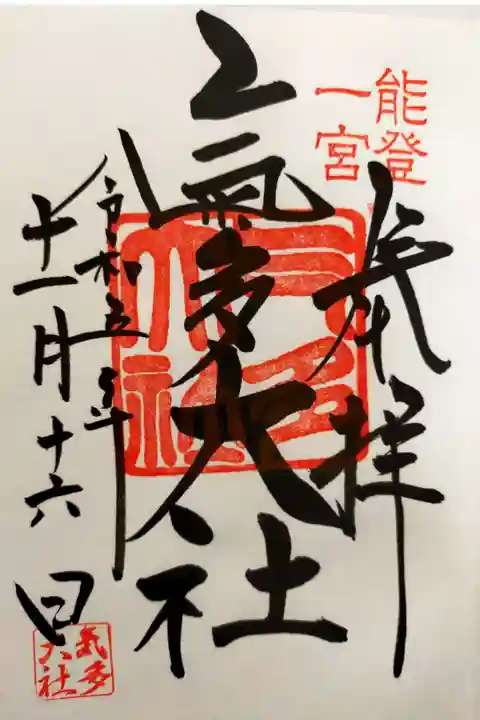 能登
一宮
奉拝
氣多大社
令和五年
十一月十六日
気多
大社